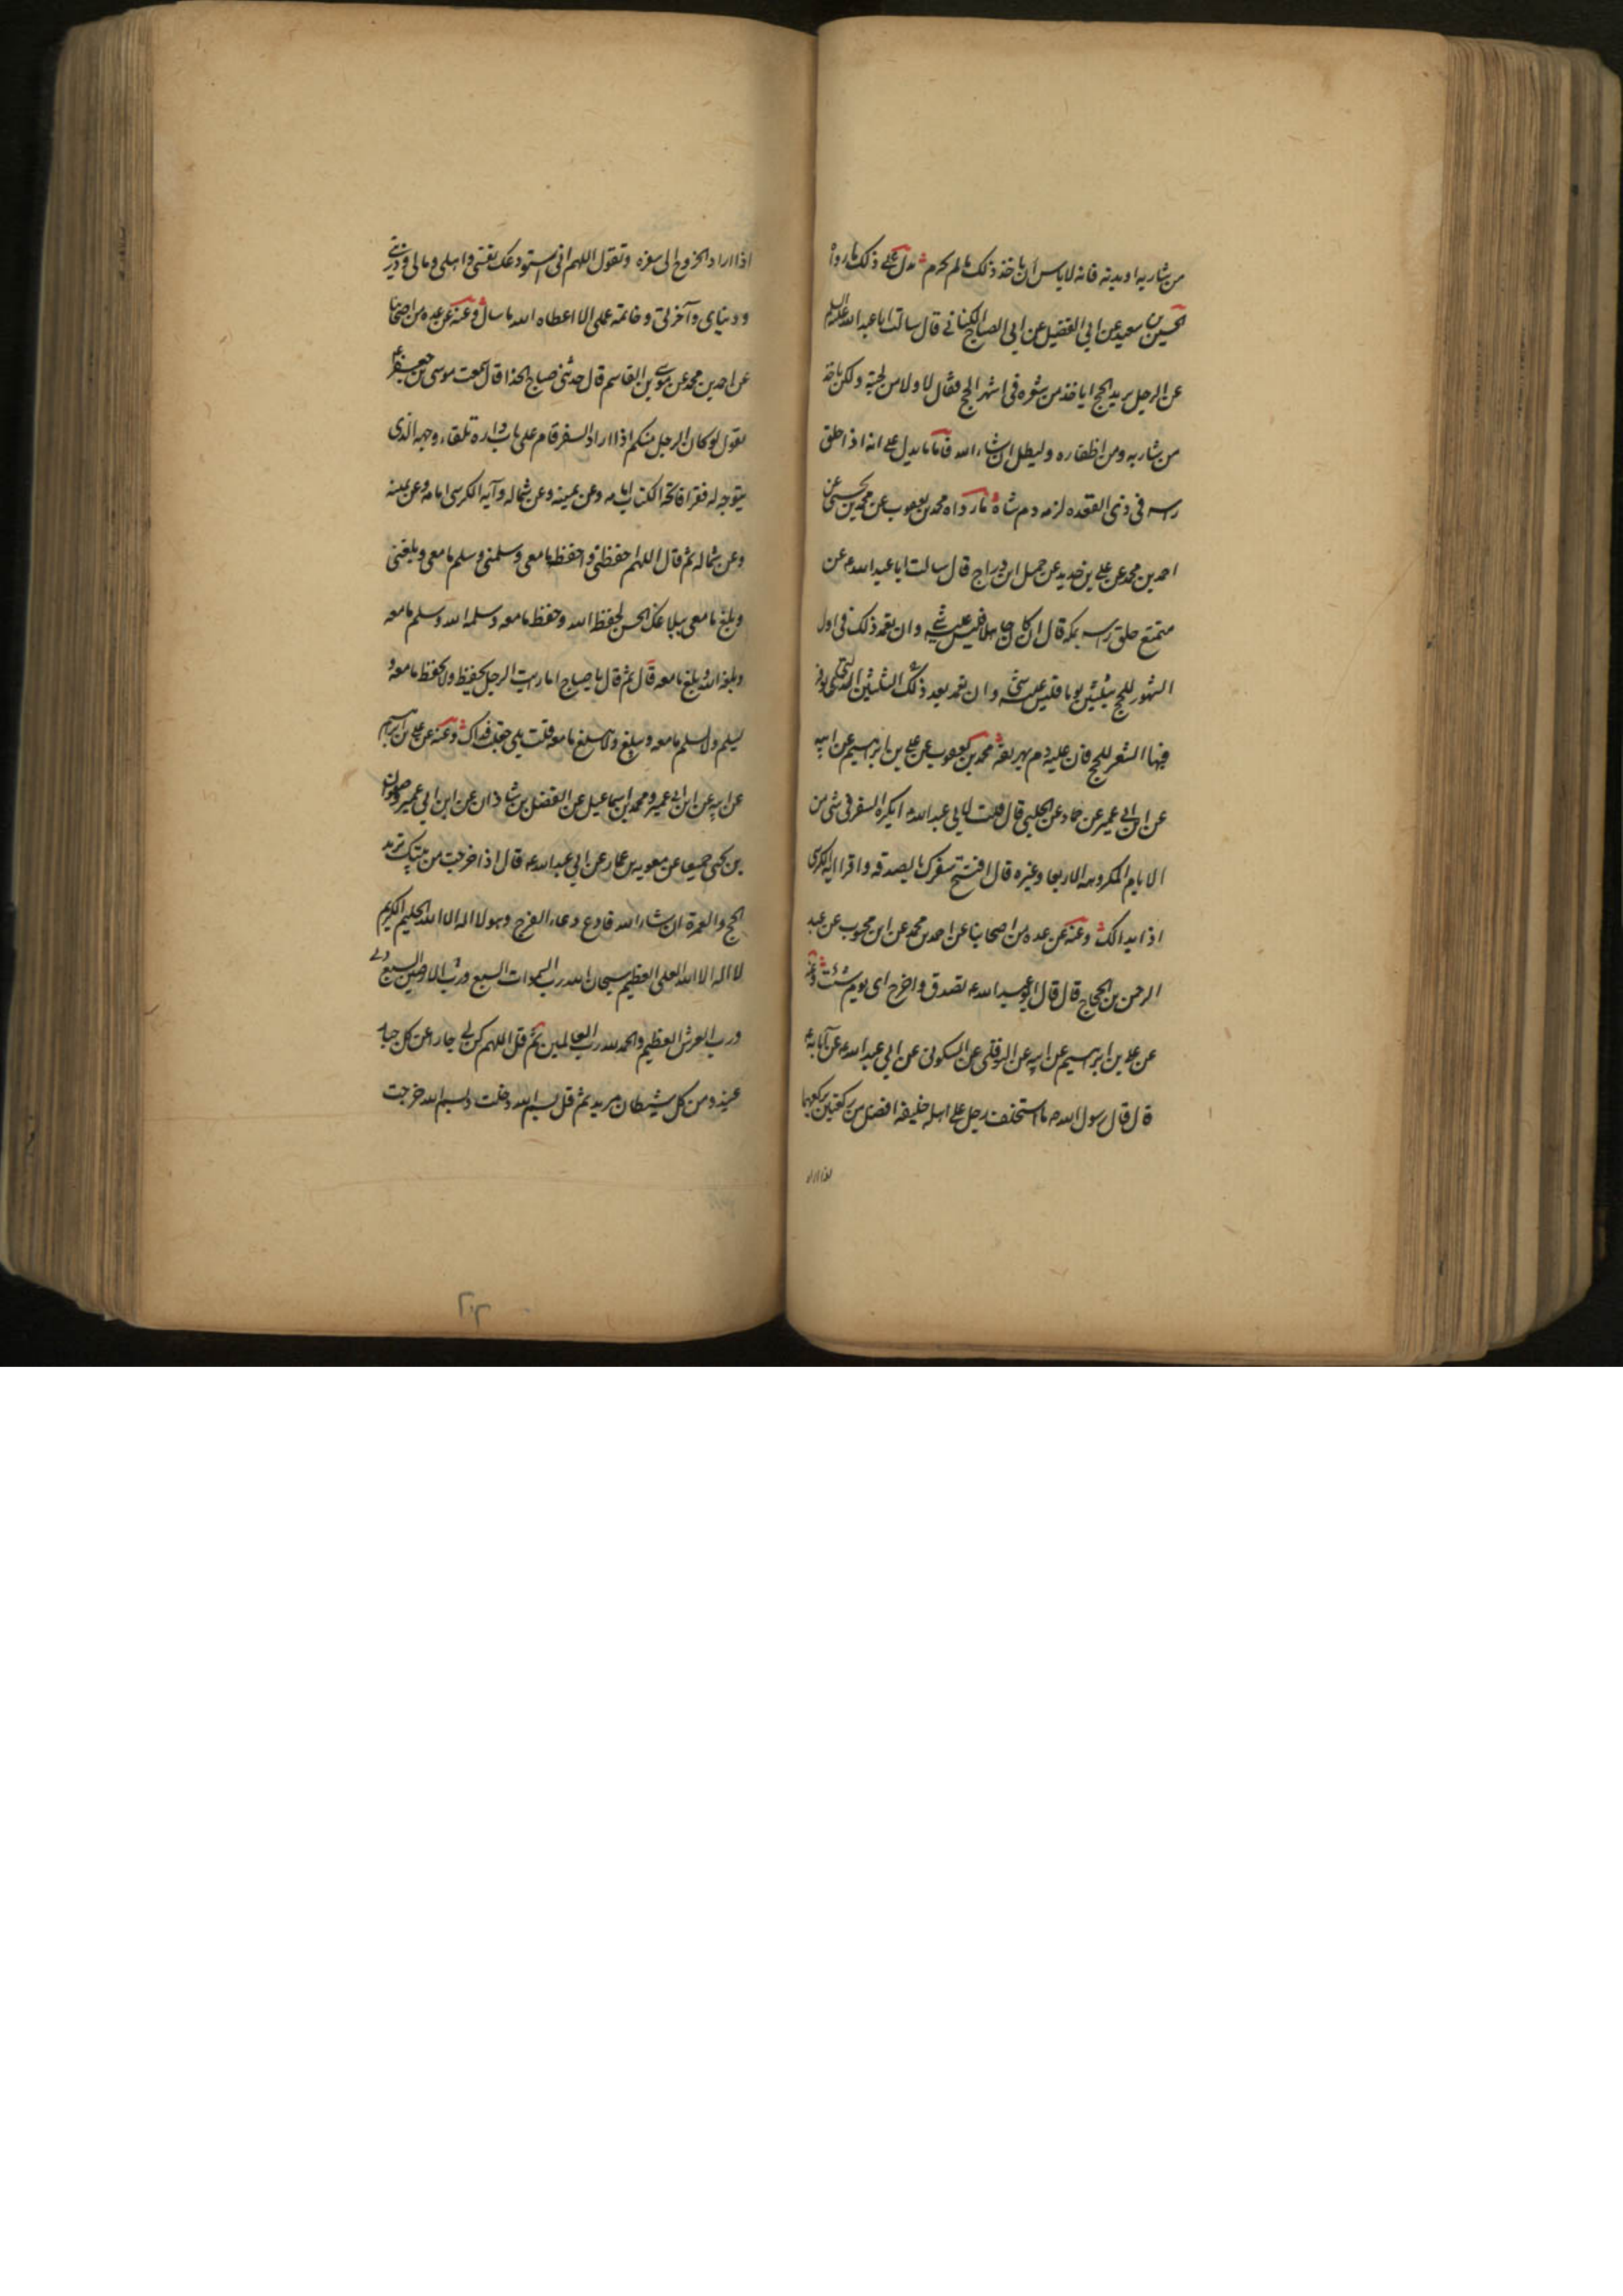 من شاربه او بدنه فانه لا باس ان ياخذ ذلك ما لم يحرم يدل على ذلك ما رواه
الحسين بن سعيد عن ابى الفضيل عن ابى الصباح الكنانى قال سالت ابا عبد الله عليه السلم
عن الرجل يريد الحج اياخذ من شعره فى اشهر الحج فقال لا ولا من لحيته ولكن ياخذ
من شاربه ومن اظفاره وليطل ان شاء الله فاما ما يدل على انه اذا حلق
راسه فى ذى القعده لزمه دم شاة ما رواه محمد بن يعقوب عن محمد بن يحيى عن
احمد بن محمد عن على بن حديد عن جميل ابن دراج قال سالت ابا عبد الله ع عن
متمتع حلق راسه بمكه قال ان كان جاهلا فليس عليه شى وان تعمد ذلك فى اول
الشهور للحج بثلثين يوما فليس عليه شى وان تعمد بعد ذلك الثلثين التى يوفر
فيها الشعر للحج فان عليه دم يهريقه محمد بن يعقوب عن على بن ابرهيم عن ابيه
عن ابن ابى عمير عن حماد عن الحلبى قال قلت لابى عبد الله ع ايكره السفر فى شى من
الايام المكروهه الاربعا وغيره قال افتتح سفرك بالصدقه واقرا اية الكرسى
اذا بدا لك وعنه عن عده من اصحابنا عن احمد بن محمد عن ابن محبوب عن عبد
الرحمن بن الحجاج قال قال ابو عبد الله ع تصدق واخرج اى يوم شئت وعنه
عن على بن ابرهيم عن ابيه عن النوفلى عن السكونى عن ابى عبد الله ع عن آبائه ع
قال قال رسول الله ص ما استخلف رجل على اهله خليفه افضل من ركعتين يركعهما
اذا اراد
اذا اراد الخروج الى سفره وتقول اللهم انى استودعك نفسى واهلى ومالى وذريتى
ودنياى وآخرتى وخاتمة عملى الا اعطاه الله ما سال وعنه عن عده من اصحابنا
عن احمد بن محمد عن موسى بن القاسم قال حدثنى صباح الحذا قال سمعت موسى بن جعفر ع
يقول لو كان الرجل منكم اذا اراد السفر قام على باب داره تلقاء وجهه الذى
يتوجه له فقرا فاتحة الكتاب امامه وعن يمينه وعن شماله وآية الكرسى امامه وعن يمينه
وعن شماله ثم قال اللهم احفظنى واحفظ ما معى وسلمنى وسلم ما معى وبلغنى
وبلغ ما معى ببلاغك الحسن لحفظه الله وحفظ ما معه وسلمه الله وسلم ما معه
وبلغه الله وبلغ ما معه قال ثم قال يا صباح اما رايت الرجل يحفظ ولا يحفظ ما معه و
يسلم ولا يسلم ما معه ويبلغ ولا يبلغ ما معه قلت بلى جعلت فداك وعنه عن على بن ابرهيم
عن ابيه عن ابن ابى عمير ومحمد بن اسماعيل عن الفضل بن شاذان عن ابن ابى عمير وصفوان
بن يحيى جميعا عن معويه بن عمار عن ابى عبد الله ع قال اذا خرجت من بيتك تريد
الحج والعمرة ان شاء الله فادع دعاء الفرج وهو لا اله الا الله الحليم الكريم
لا اله الا الله العلى العظيم سبحان الله رب السموات السبع ورب الارضين السبع
ورب العرش العظيم والحمد لله رب العالمين ثم قل اللهم كن لى جارا من كل جبار
عنيد ومن كل شيطان مريد ثم قل بسم الله دخلت وبسم الله خرجت